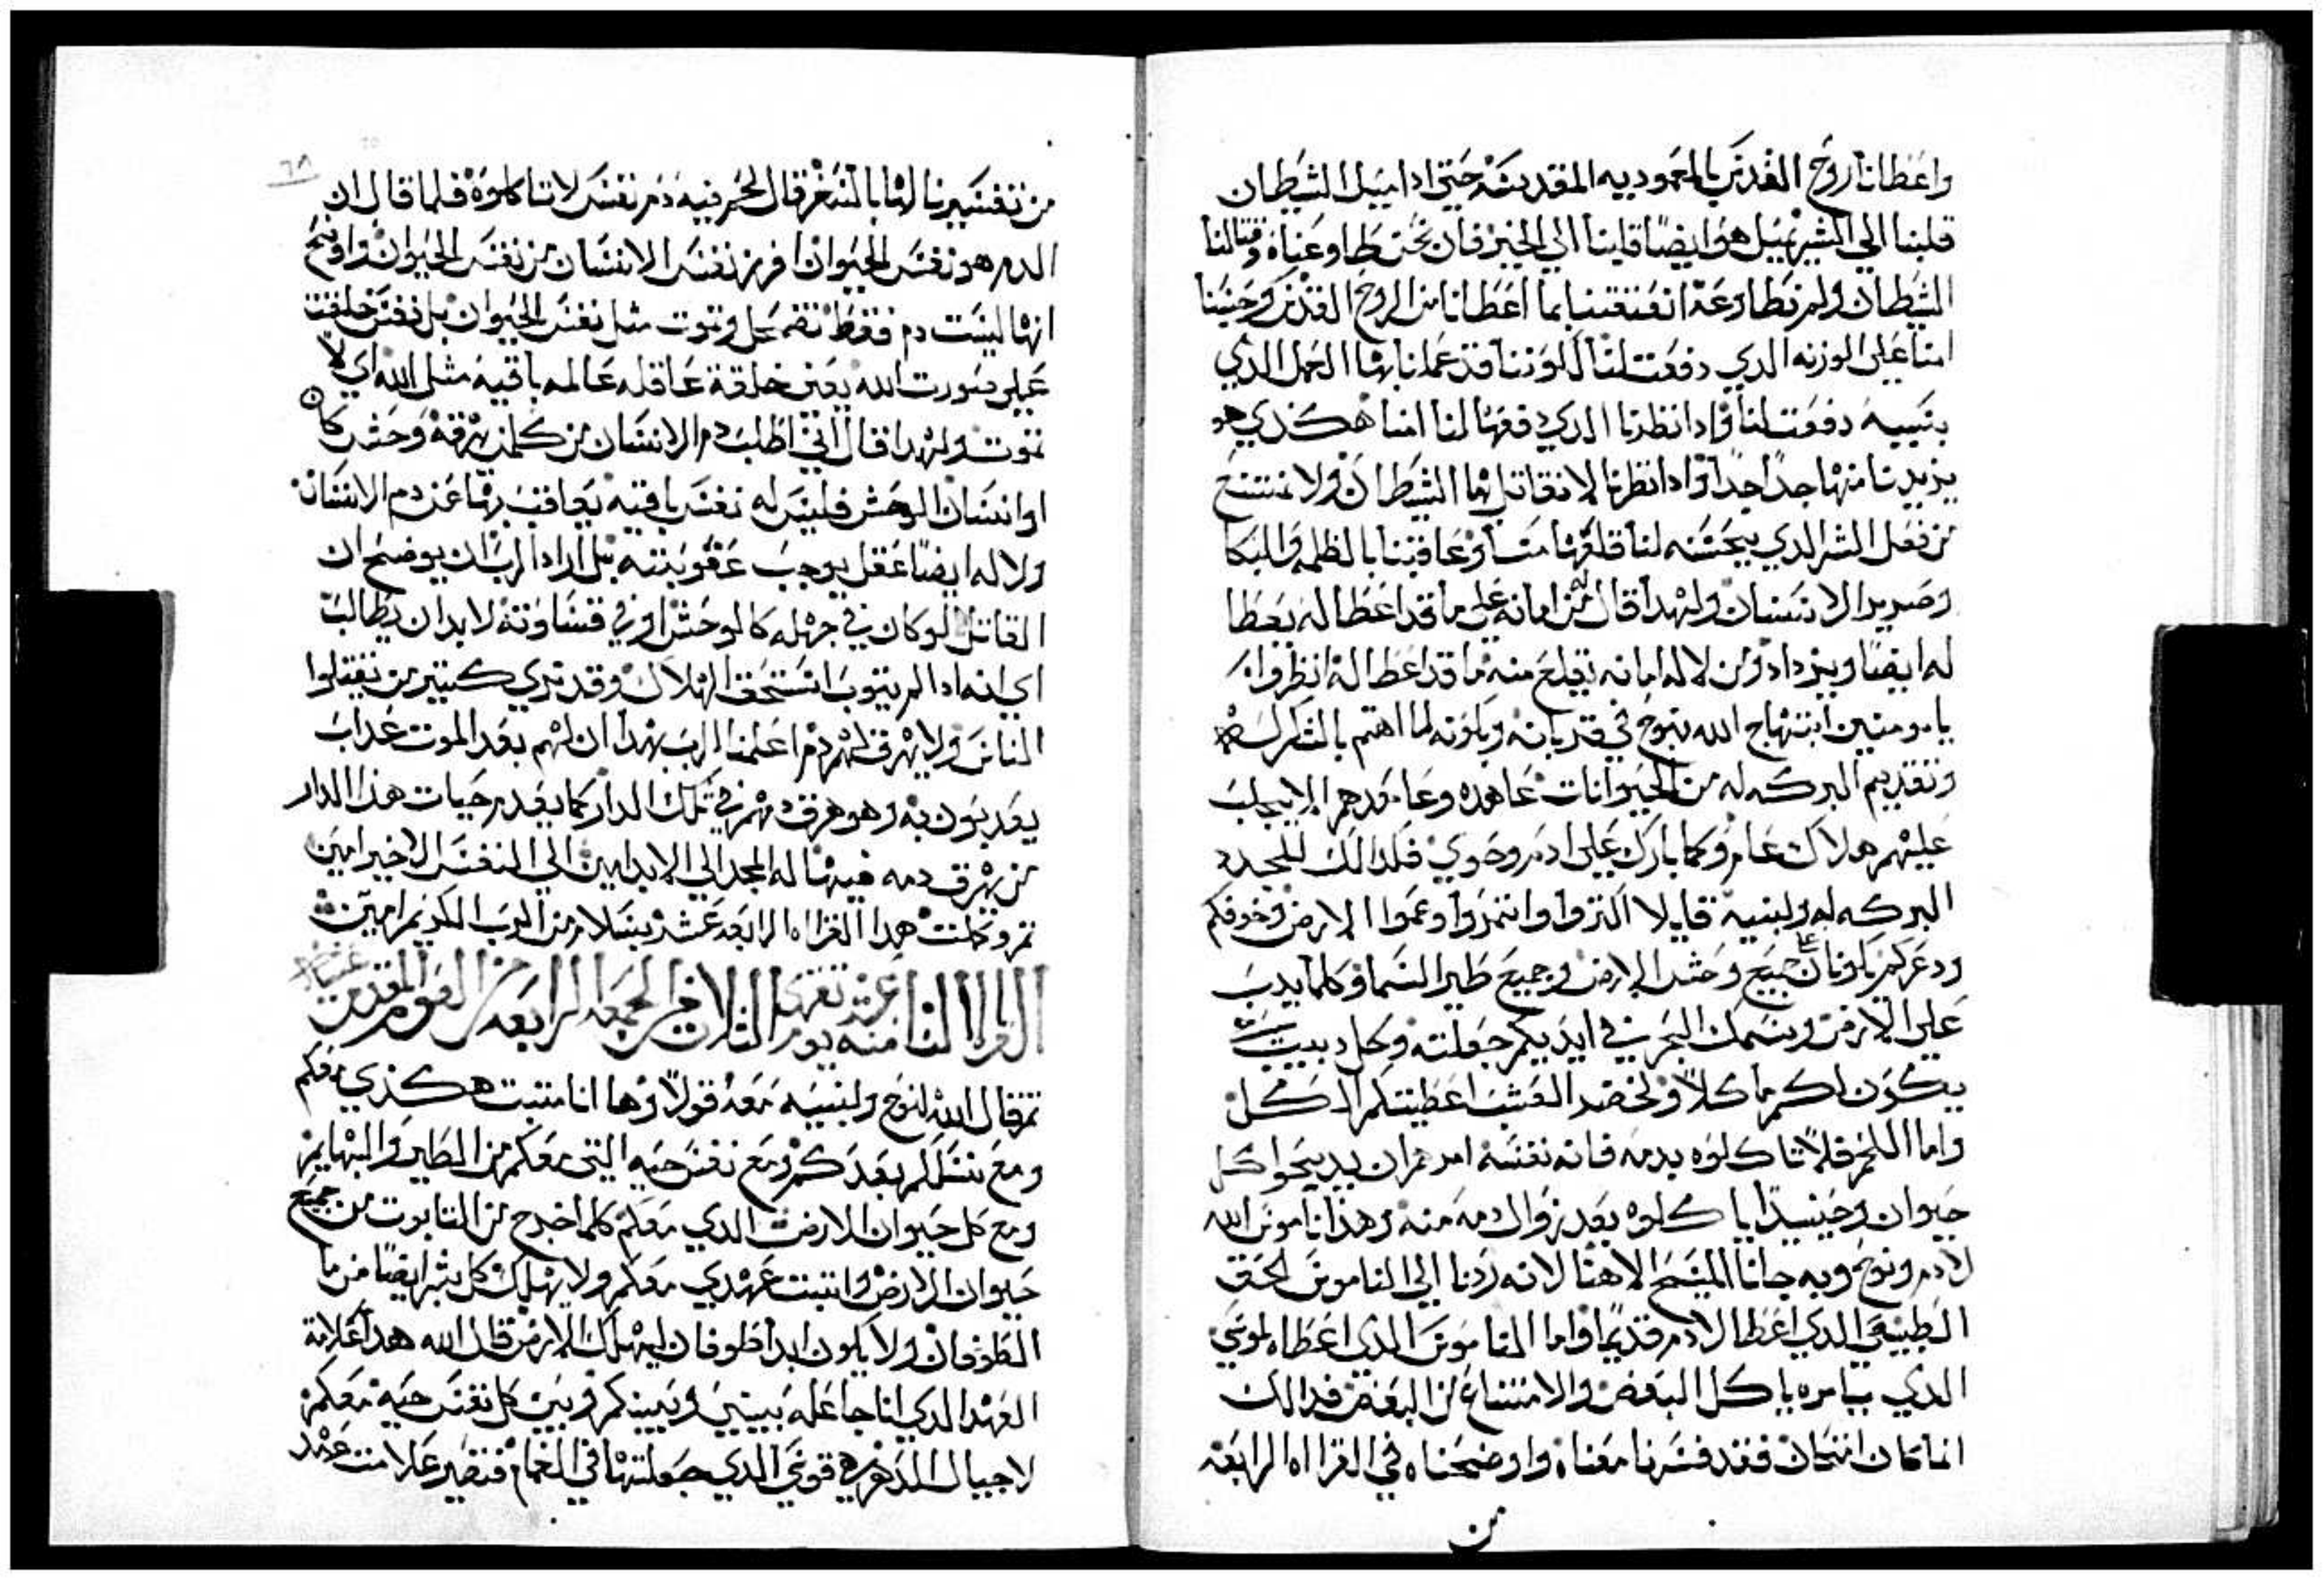 واعطانا روح القدس بالمعموديه المقدسه حتي ادا اميل الشيطان
قلبنا الي الشر نميل هو ايضًا قلبنا الي الخير فان نحن طاوعناه وقتالنا
الشيطان ولم نطاوعه انفتقتنا بما اعطانا من الروح القدس وحسبنا
امنا علي الوزنه الدي دفعت لنا لكوننا قد عملنا بها العمل الدي
بسببه دفعت لنا وادا نظرنا الدي دفعها لنا امنا هكذي هو
يزيدنا منها جدًا جدًا وادا نظرنا لا نقاتل بها الشيطان ولا نمتنع
من فعل الشر الدي يحسنه لنا قلعها منا وعاقبنا بالظلمه والبكا
وصرير الاسنان ولهدا قال من له امانه علي ما قد اعطا له يعطا
له ايضًا ويزداد ومن لا له امانه تقلع منه ما قد اعطا له انظروا
يا مومنين ابتهاج الله بنوح في قربانه وكونه لما اهتم بالشكر له
وتقديم البركه له من الحيوانات عاهده وعاقدهم الا يجلب
عليهم هلاك عام وكما بارك علي ادم وحوي فلدالك للمجدد
البركه له ولبنيه قايلا اكتروا وانتمروا وعموا الارض وخوفكم
ودعركم يكونان علي جميع وحش الارض وجميع طير السما وكلما يدب
علي الارض وسمك البحر في ايديكم جعلته وكل دبيب
يكون لكم ماكلاً ولخضر العشب اعطيتكم الكل
واما اللحم فلا تاكلوه بدمه فانه نفسه امرهم ان يدبحوا كل
حيوان وحينيدا ياكلوه بعد زوال دمه منه وهذا ناموس الله
لادم ونوح وبه جانا المسيح الاهنا لانه ردنا الي الناموس الحق
الطبيعي الدي اعطا لادم قديمًا واما الناموس الدي اعطاه لموسي
الدي يامره ياكل البعض والامتناع من البعض فدالك
انما كان امتحان فقد فسرنا معناه واوضحناه في القراه الرابعه
من
٦٨
من تفسيرنا لهدا السفر قال لحم فيه دم نفس لا تاكلوه فلما قال ان
الدم هو نفس الحيوان افرز نفس الانسان من نفس الحيوان واوضح
انها ليست دم فقط تضمحل وتموت مثل نفس الحيوان بل نفس خلقت
علي صورت الله يعني خلقة عاقله عالمه باقيه مثل الله اي لا
تموت ولهدا قال اني اطلب دم الانسان من كلمن يهرقه وحش كان
او انسان الوحش فليس له نفس باقيه يعاقب بها عن دم الانسان
ولا له ايضًا عقل يوجب عقوبته بل اراد الرب ان يوضح ان
القاتل لو كان في جهله كالوحش او في قساوته لابد ان يطالب
اي انه ادا لم يتوب استحق الهلاك وقد نري كتير من يقتلوا
الناس ولا يهرق لهم دم اعلمنا الرب بهدا ان لهم بعد الموت عداب
يعدبون به وهو هرق دمهم في تلك الدار كما يعدم حيات هذا الدار
من يهرق دمه فيها له المجد الي الابد امين الي النفس الاخير امين
تم وكملت هدا القراه الرابعه عشر بسلام من الرب الكريم امين
القراه التامنه عند تفتها يوم التلات من الجمعه الرابعه من الصوم المقدس
تم قال الله لنوح ولبنيه معه قولاً وها انا متبت هكذي معكم
ومع نسلكم بعدكم ومع نفس حيه التي معكم من الطير والبهايم
ومع كل حيوان الارض الدي معكم كلما اخرج من التابوت من جميع
حيوان الارض واتبت عهدي معكم ولا يهلك كل بشر ايضًا من ما
الطوفان ولا يكون ابدا طوفان ليهلك الارض قال الله هدا علامة
العهد الدي انا جاعله بيني وبينكم وبين كل نفس حيه معكم
لاجيال الدهر هو قوسي الدي جعلتها في الغمام فتصير علامت عهد